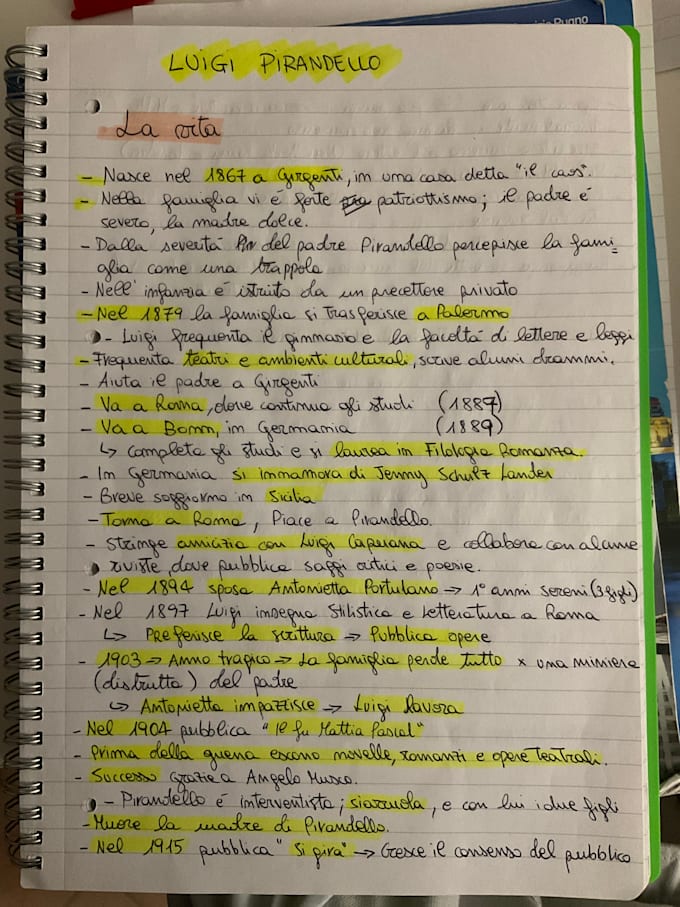 Rugno
LUIGI PIRANDELLO
La vita
- Nasce nel 1867 a Girgenti, in una casa detta "il caos".
- Nella famiglia vi é forte patriottismo; il padre é
severo, la madre dolce.
- Dalla severitá del padre Pirandello percepisce la fami=
glia come una trappola
- Nell' infanzia é istruito da un precettore privato
- Nel 1879 la famiglia si trasferisce a Palermo
- Luigi frequenta il ginnasio e la facoltá di lettere e leggi
- Frequenta teatri e ambienti culturali, scrive alcuni drammi.
- Aiuta il padre a Girgenti
- Va a Roma, dove continua gli studi (1887)
- Va a Bonn, in Germania (1889)
↳ completa gli studi e si laurea in Filologia Romanza.
- In Germania si innamora di Jenny Schulz Lander
- Breve soggiorno in Sicilia
- Torna a Roma, Piace a Pirandello.
- Stringe amicizia con Luigi Capuana e collabora con alcune
riviste, dove pubblica saggi critici e poesie.
- Nel 1894 sposa Antonietta Portulano → 1° anni sereni (3 figli)
- Nel 1897 Luigi insegna Stilistica e Letteratura a Roma
↳ Preferisce la scrittura → Pubblica opere
- 1903 → Anno tragico → La famiglia perde tutto × una miniera
(distrutta) del padre
↳ Antonietta impazzisce → Luigi lavora
- Nel 1904 pubblica "Il fu Mattia Pascal"
- Prima della guerra escono novelle, romanzi e opere Teatrali.
- Successo grazie a Angelo Musco.
- Pirandello é interventista; si arruola, e con lui i due figli
- Muore la madre di Pirandello.
- Nel 1915 pubblica "Si gira" → Cresce il consenso del pubblico